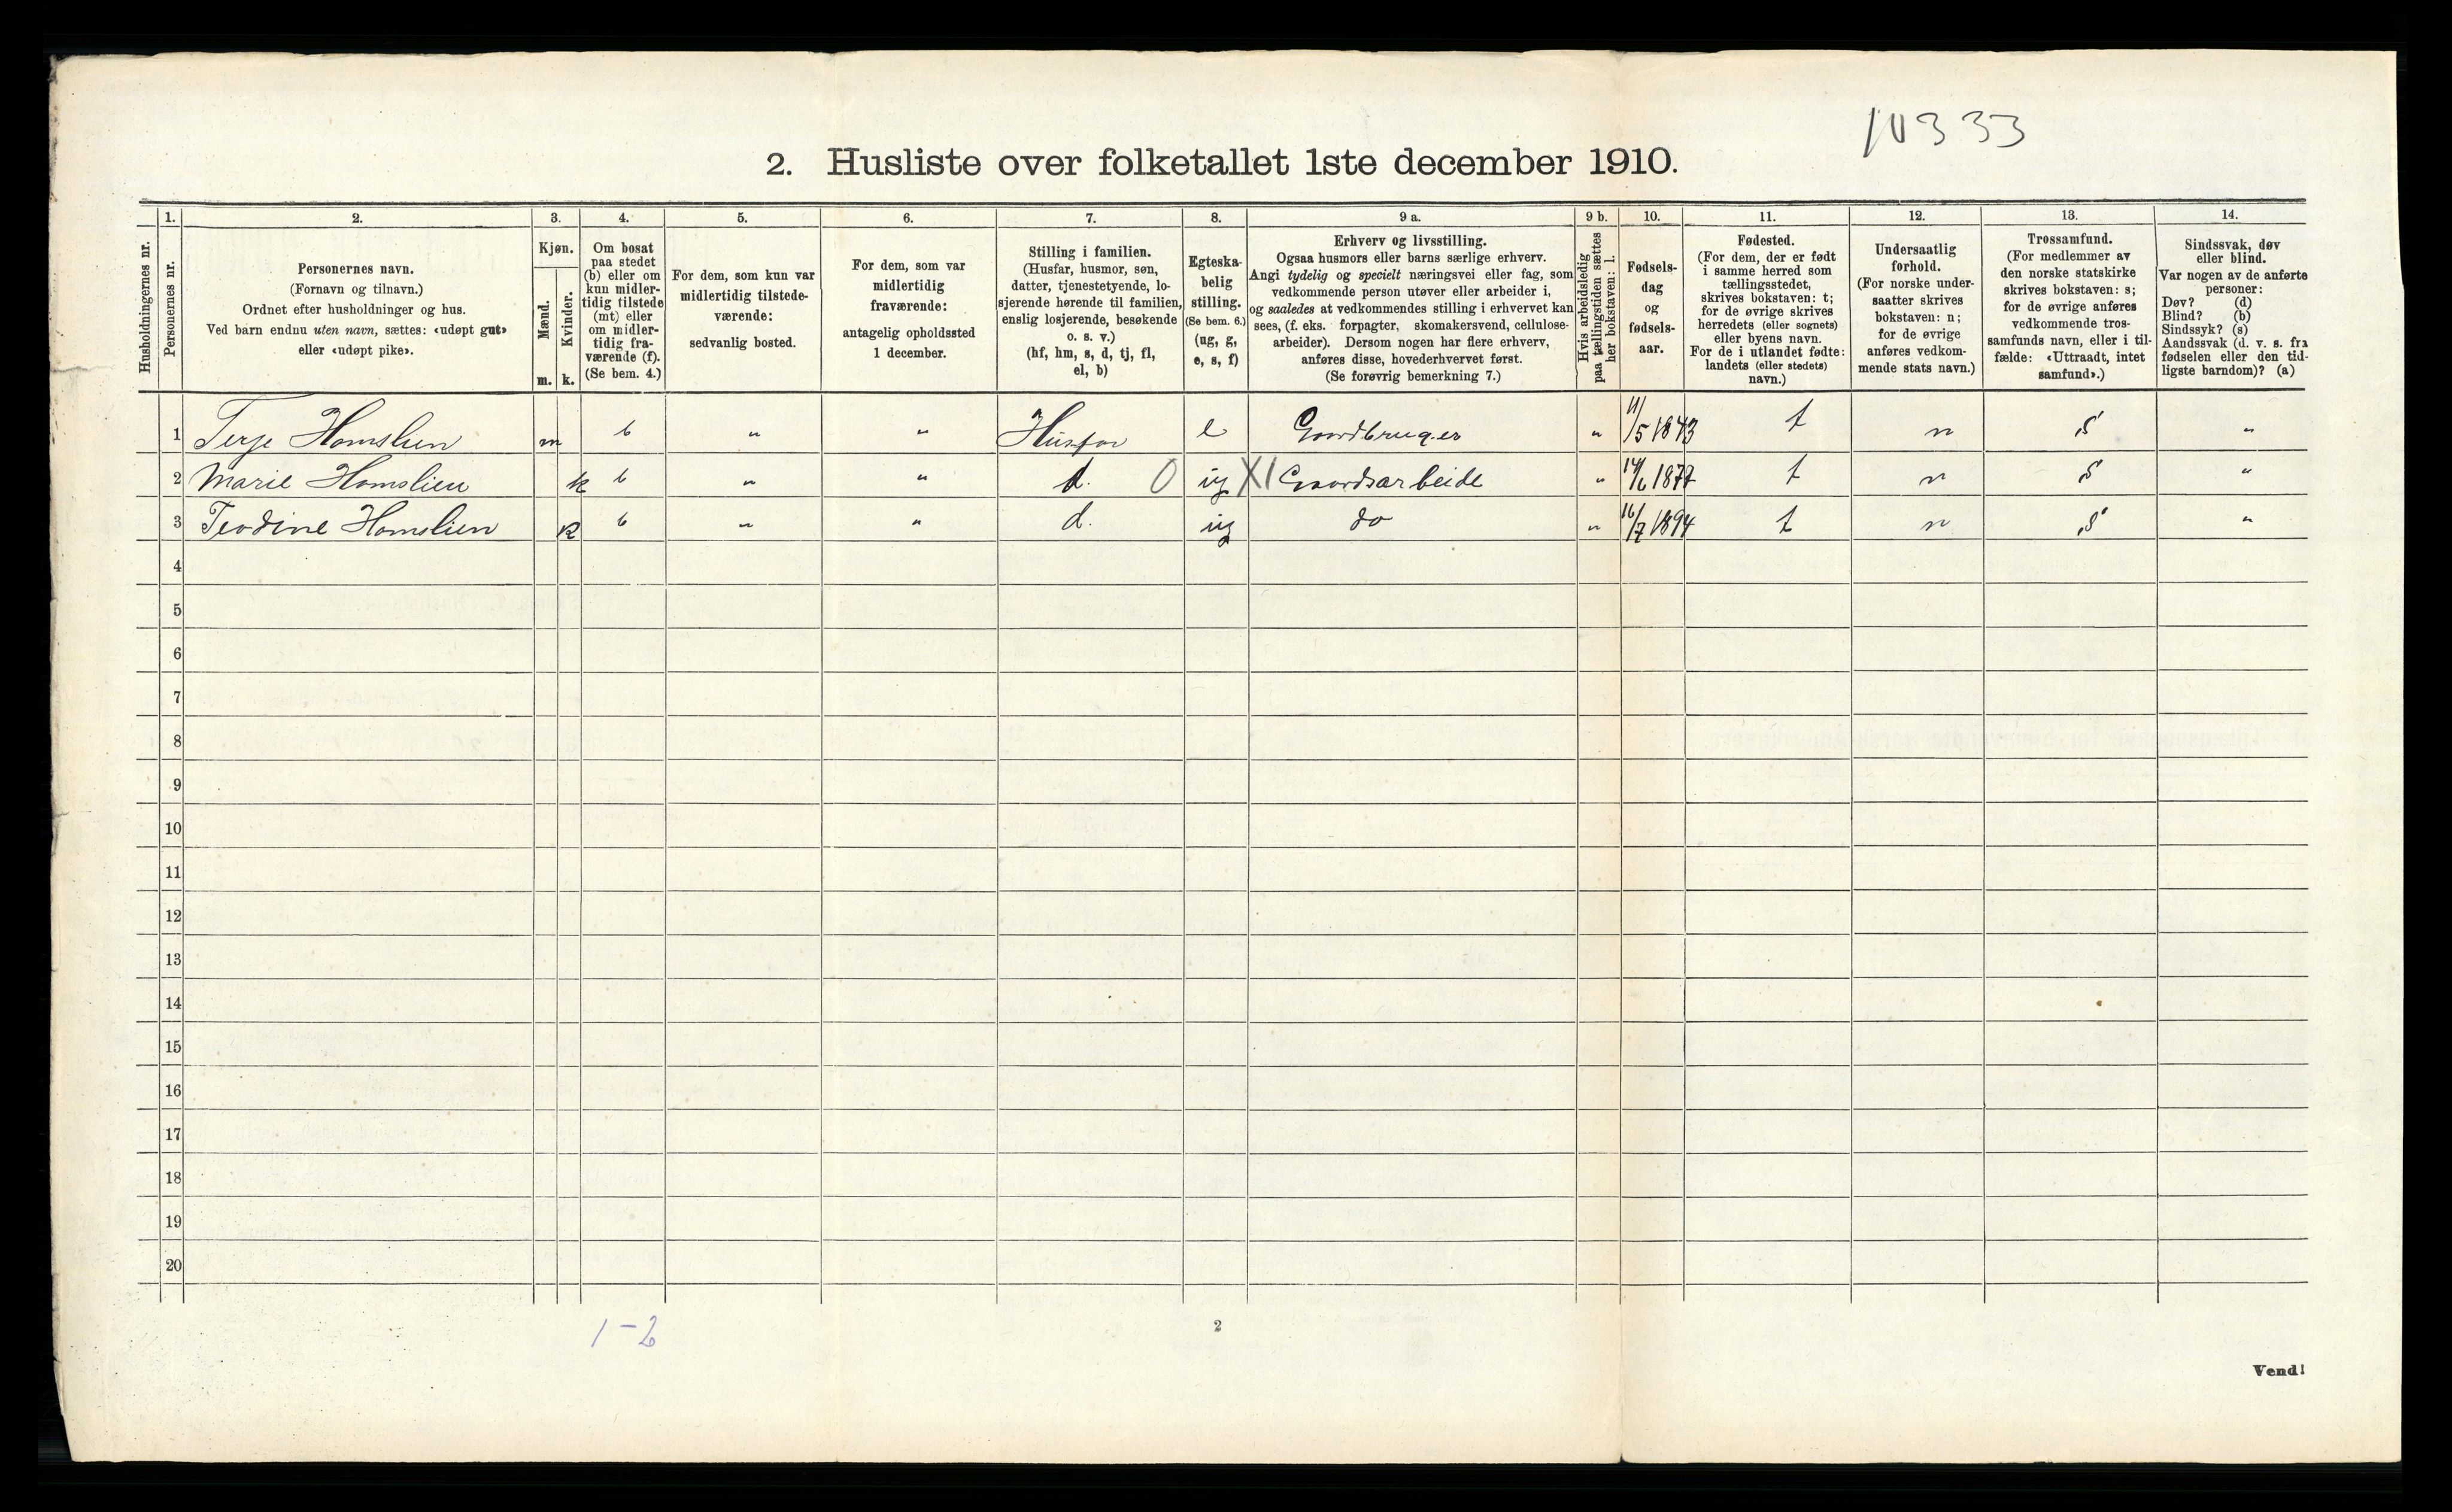 10333
2. Husliste over folketallet 1ste december 1910.
Husholdningernes nr.
1.
Personernes nr.
2.
Personernes navn.
(Fornavn og tilnavn.)
Ordnet efter husholdninger og hus.
Ved barn endnu uten navn, sættes: «udøpt gut»
eller «udøpt pike».
3.
Kjøn.
Mænd.
m.
Kvinder.
k.
4.
Om bosat
paa stedet
(b) eller om
kun midler-
tidig tilstede
(mt) eller
om midler-
tidig fra-
værende (f).
(Se bem. 4.)
5.
For dem, som kun var
midlertidig tilstede-
værende:
sedvanlig bosted.
6.
For dem, som var
midlertidig
fraværende:
antagelig opholdssted
1 december.
7.
Stilling i familien.
(Husfar, husmor, søn,
datter, tjenestetyende, lo-
sjerende hørende til familien,
enslig losjerende, besøkende
o. s. v.)
(hf, hm, s, d, tj, fl,
el, b)
8.
Egteska-
belig
stilling.
(Se bem. 6.)
(ug, g,
e, s, f)
9 a.
Erhverv og livsstilling.
Ogsaa husmors eller barns særlige erhverv.
Angi tydelig og specielt næringsvei eller fag, som
vedkommende person utøver eller arbeider i,
og saaledes at vedkommendes stilling i erhvervet kan
sees, (f. eks. forpagter, skomakersvend, cellulose-
arbeider). Dersom nogen har flere erhverv,
anføres disse, hovederhvervet først.
(Se forøvrig bemerkning 7.)
9 b.
Hvis arbeidsledig
paa tællingstiden sættes
her bokstaven: l.
10.
Fødsels-
dag
og
fødsels-
aar.
11.
Fødested.
(For dem, der er født
i samme herred som
tællingsstedet,
skrives bokstaven: t;
for de øvrige skrives
herredets (eller sognets)
eller byens navn.
For de i utlandet fødte:
landets (eller stedets)
navn.)
12.
Undersaatlig
forhold.
(For norske under-
saatter skrives
bokstaven: n;
for de øvrige
anføres vedkom-
mende stats navn.)
13.
Trossamfund.
(For medlemmer av
den norske statskirke
skrives bokstaven: s;
for de øvrige anføres
vedkommende tros-
samfunds navn, eller i til-
fælde: «Uttraadt, intet
samfund».)
14.
Sindssvak, døv
eller blind.
Var nogen av de anførte
personer:
Døv? (d)
Blind? (b)
Sindssyk? (s)
Aandssvak (d. v. s. fra
fødselen eller den tid-
ligste barndom)? (a)
1 Terje Homslien m b " " Husfar e Gaardbruger " 11/5 1843 t n S "
2 Marie Homslien k b " " d. 0 ug X1 Gaardsarbeide " 14/6 1877 t n S "
3 Teodine Homslien k b " " d. ug do " 16/7 1894 t n S "
4
5
6
7
8
9
10
11
12
13
14
15
16
17
18
19
20
1-2
2
Vend!